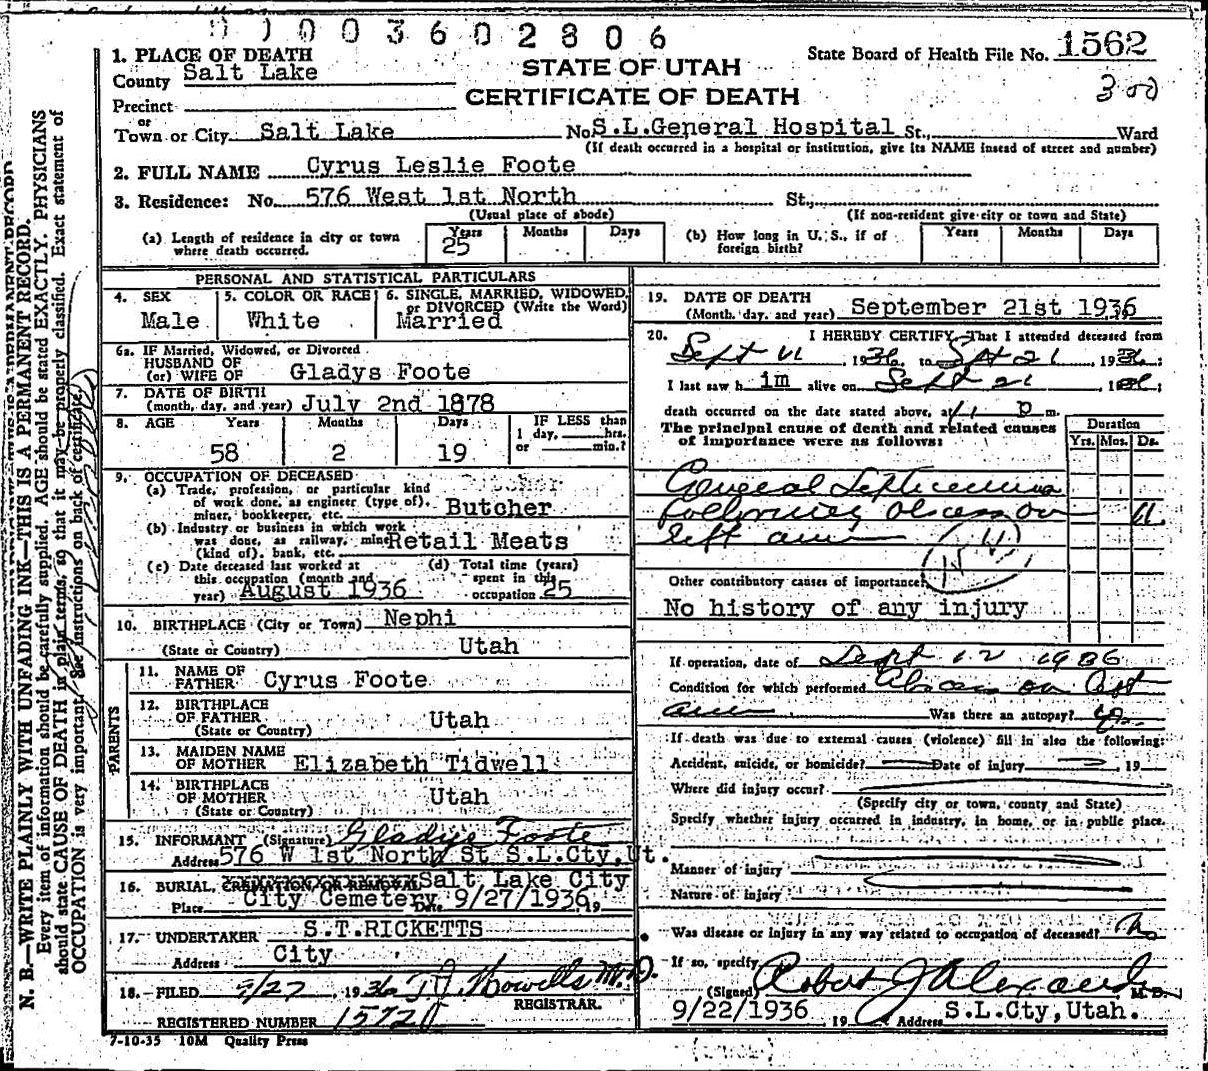 003602806
1. PLACE OF DEATH
County Salt Lake
Precinct
or
Town or City Salt Lake
STATE OF UTAH
CERTIFICATE OF DEATH
State Board of Health File No. 1562
300
No. S.L.General Hospital St., Ward
(If death occurred in a hospital or institution, give its NAME instead of street and number)
2. FULL NAME Cyrus Leslie Foote
3. Residence: No. 576 West 1st North St.,
(Usual place of abode) (If non-resident give city or town and State)
(a) Length of residence in city or town where death occurred. Years 25 Months Days
(b) How long in U. S., if of foreign birth? Years Months Days
PERSONAL AND STATISTICAL PARTICULARS
4. SEX Male
5. COLOR OR RACE White
6. SINGLE, MARRIED, WIDOWED, or DIVORCED (Write the Word) Married
6a. IF Married, Widowed, or Divorced
HUSBAND OF
(or) WIFE OF Gladys Foote
7. DATE OF BIRTH
(month, day, and year) July 2nd 1878
8. AGE Years 58 Months 2 Days 19
IF LESS than
1 day, hrs.
or min.?
9. OCCUPATION OF DECEASED
(a) Trade, profession, or particular kind
of work done, as engineer (type of),
miner, bookkeeper, etc. Butcher
(b) Industry or business in which work
was done, as railway, mine
(kind of), bank, etc. Retail Meats
(c) Date deceased last worked at
this occupation (month and
year) August 1936
(d) Total time (years)
spent in this
occupation 25
10. BIRTHPLACE (City or Town) Nephi
(State or Country) Utah
PARENTS
11. NAME OF
FATHER Cyrus Foote
12. BIRTHPLACE
OF FATHER Utah
(State or Country)
13. MAIDEN NAME
OF MOTHER Elizabeth Tidwell
14. BIRTHPLACE
OF MOTHER Utah
(State or Country)
15. INFORMANT (Signature) Gladys Foote
Address 576 W 1st North St S.L.Cty,Ut.
16. BURIAL, CREMATION OR REMOVAL Salt Lake City
Place City Cemetery Date 9/27/1936, 19
17. UNDERTAKER S.T.RICKETTS
Address City
18. FILED 9/27, 1936 T.J. Howells M.D.
REGISTRAR.
REGISTERED NUMBER 15720
7-10-35 10M Quality Press
19. DATE OF DEATH
(Month, day, and year) September 21st 1936
20. I HEREBY CERTIFY, That I attended deceased from
Sept 11 1936 to Sept 21 1936;
I last saw h im alive on Sept 21 1936;
death occurred on the date stated above, at 11 P m.
The principal cause of death and related causes
of importance were as follows:
Duration
Yrs. Mos. Ds.
General Septicemia
following abscess on 11
left arm
Other contributory causes of importance:
No history of any injury
If operation, date of Sept 12 1936
Condition for which performed Abscess on left
arm Was there an autopsy?
If death was due to external causes (violence) fill in also the following:
Accident, suicide, or homicide? Date of injury , 19
Where did injury occur?
(Specify city or town, county, and State)
Specify whether injury occurred in industry, in home, or in public place.
Manner of injury
Nature of injury
Was disease or injury in any way related to occupation of deceased? No
If so, specify
(Signed) Robert J Alexander M.D.
9/22/1936 , 19 Address S.L.Cty,Utah.
N. B.—WRITE PLAINLY WITH UNFADING INK—THIS IS A PERMANENT RECORD.
Every item of information should be carefully supplied. AGE should be stated EXACTLY. PHYSICIANS
should state CAUSE OF DEATH in plain terms, so that it may be properly classified. Exact statement of
OCCUPATION is very important. See instructions on back of certificate.